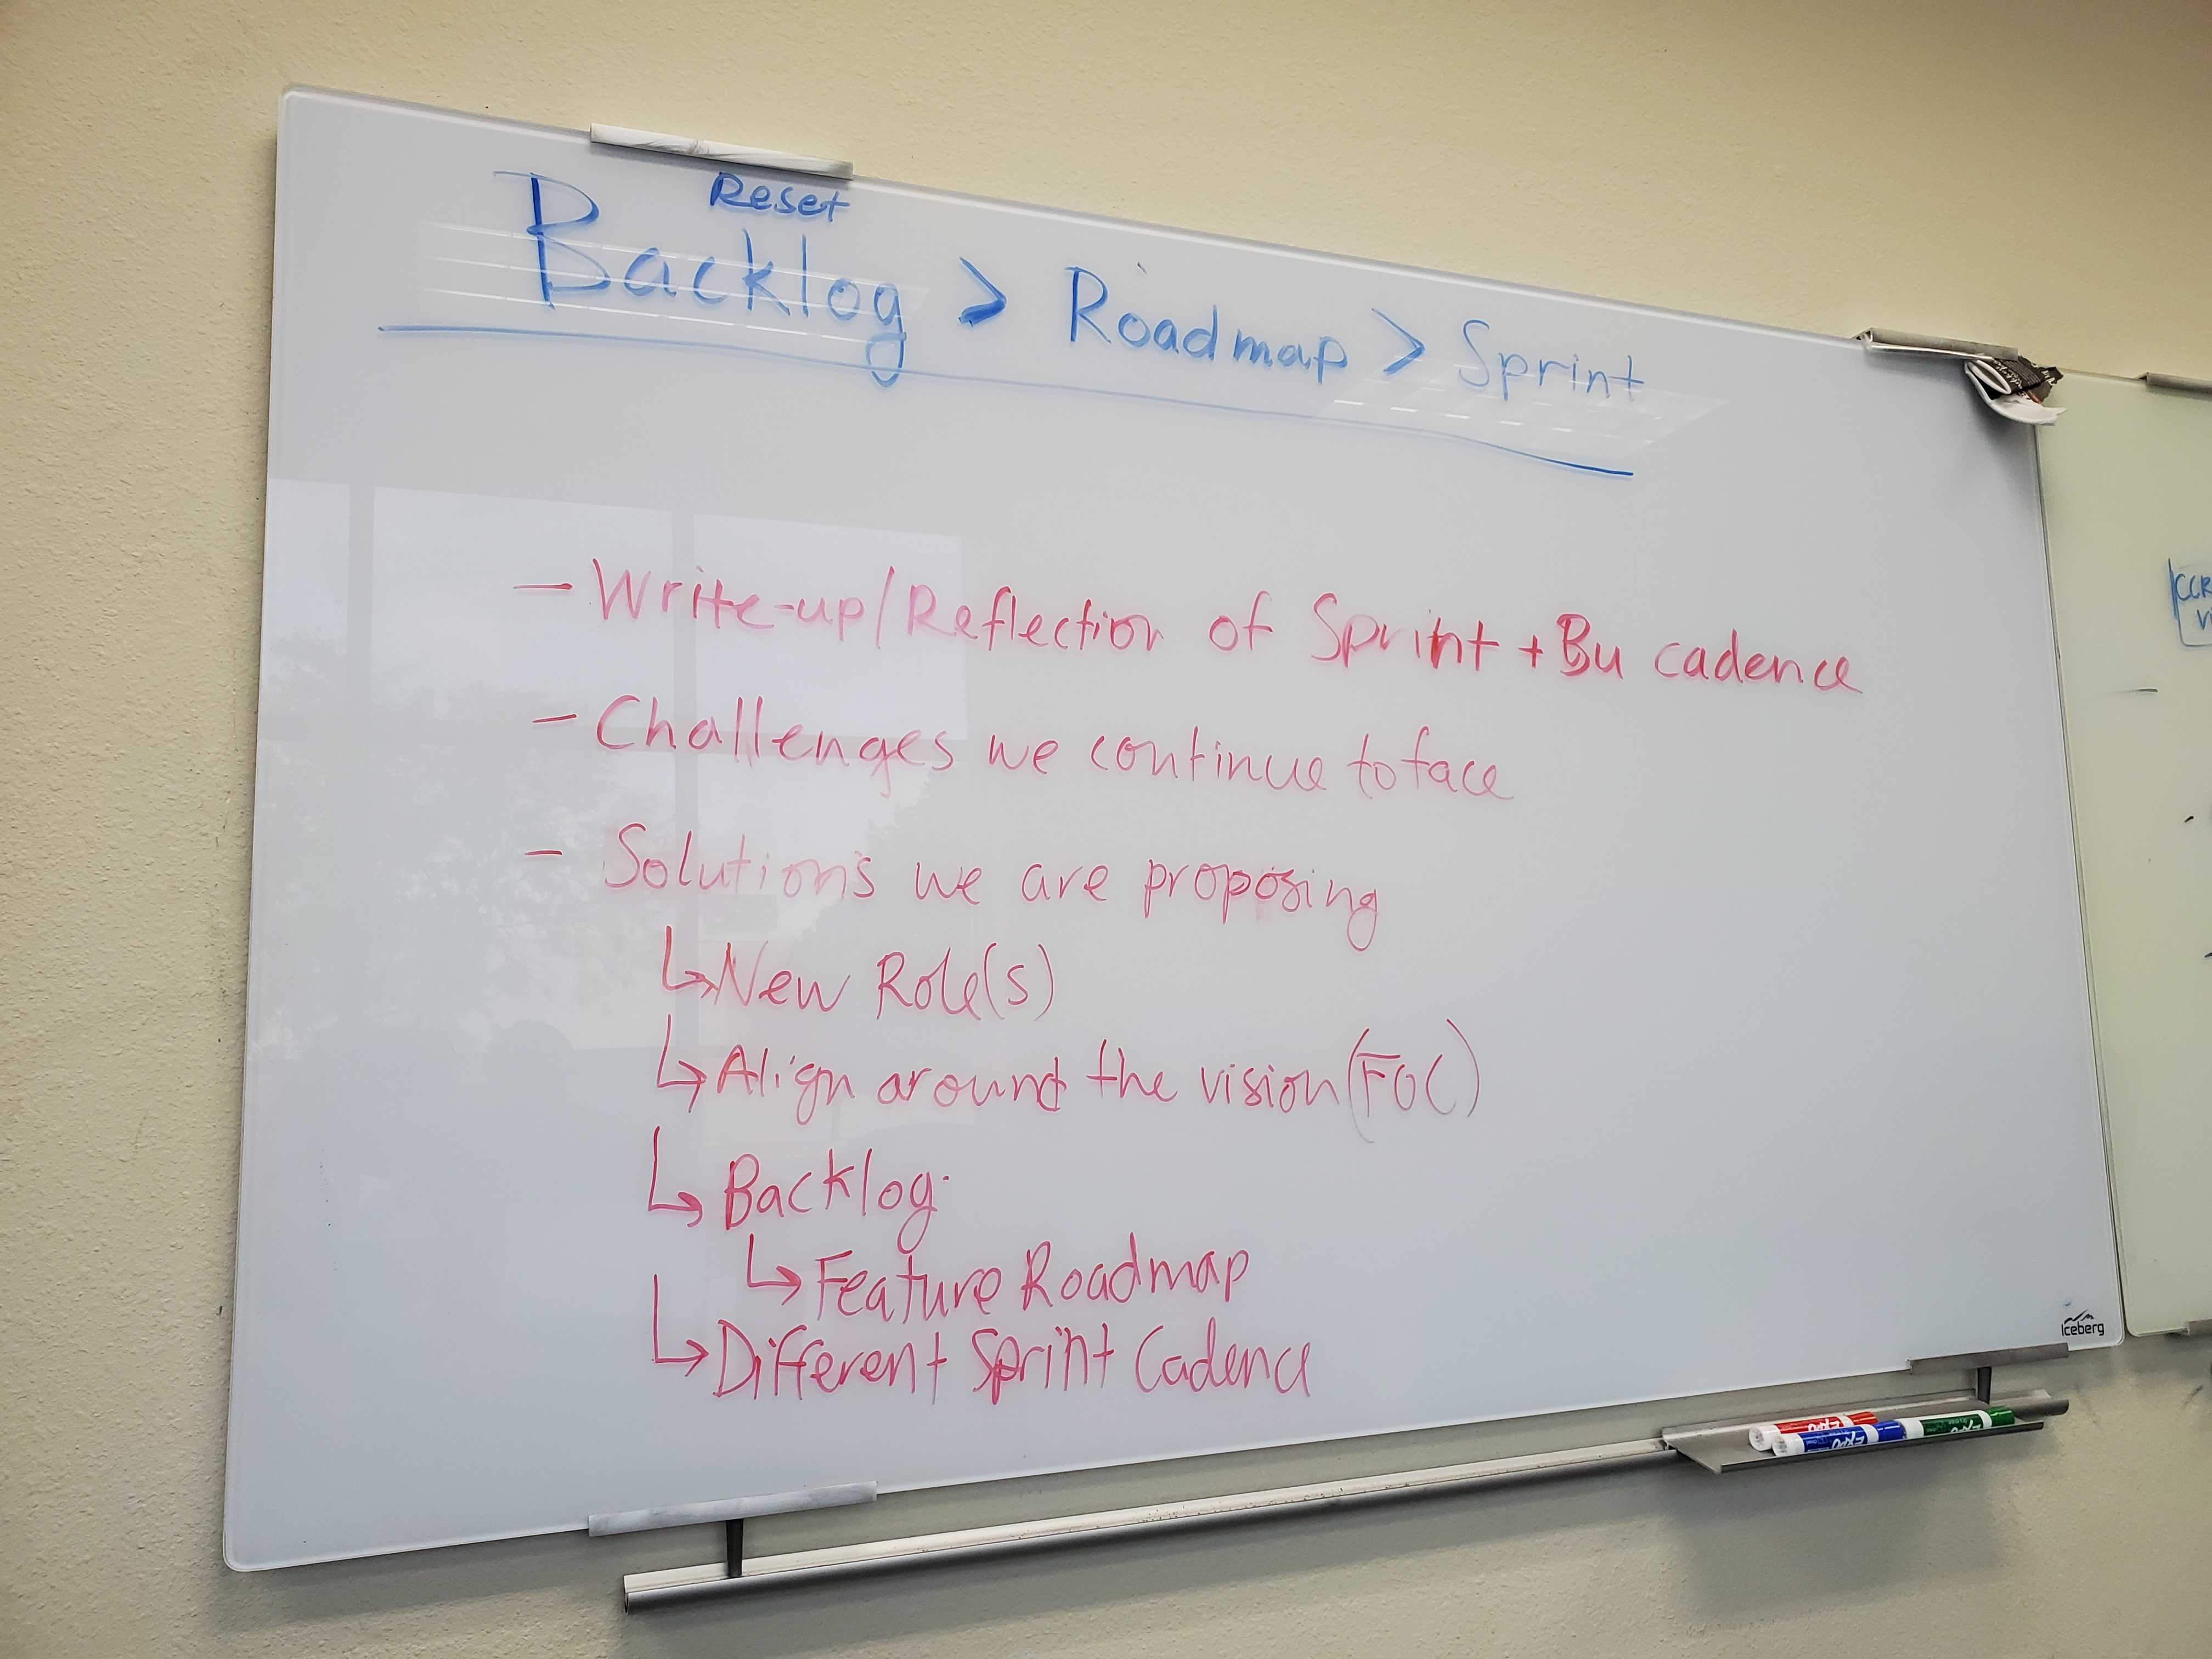 Reset
Backlog > Roadmap > Sprint
- Write-up/Reflection of Sprint + Bu cadence
- Challenges we continue to face
- Solutions we are proposing
↳ New Role(s)
↳ Align around the vision (FOC)
↳ Backlog
↳ Feature Roadmap
↳ Different Sprint Cadence
Iceberg
EXPO
EXPO
EXPO